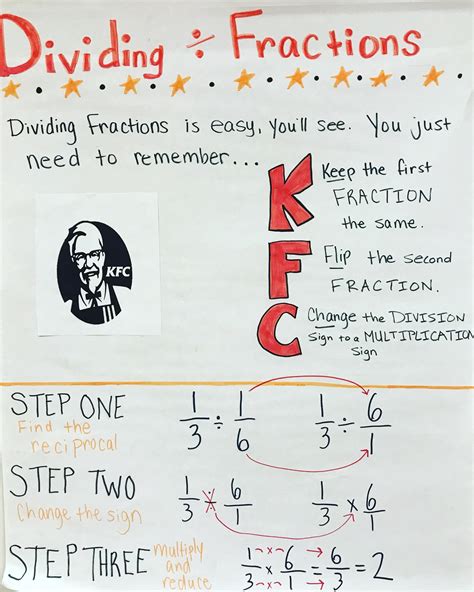 Dividing ÷ Fractions
Dividing Fractions is easy, you'll see. You just
need to remember...
K Keep the first
FRACTION
the same.
KFC
F Flip the second
FRACTION.
C Change the DIVISION
sign to a MULTIPLICATION
sign
STEP ONE
Find the
reciprocal
1/3 ÷ 1/6 1/3 ÷ 6/1
STEP TWO
Change the sign
1/3 ÷ 6/1 1/3 × 6/1
STEP THREE multiply
and
reduce
1/3 × 6/1 = 6/3 = 2